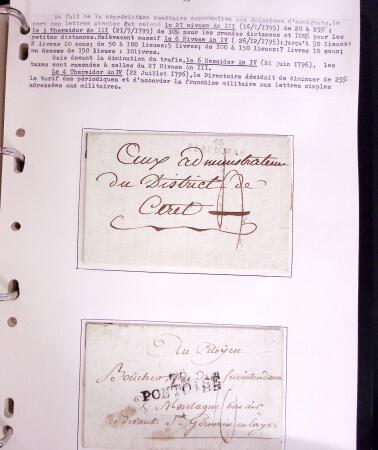 Du fait de la dépréciation monétaire consécutive aux émissions d'assignats, le
port des lettres simples fut relevé le 27 nivose An III (16/1/1795) de 20 à 25% ;
le 3 Thermidor An III (21/7/1795) de 30% pour les grandes distances et 100% pour les
petites distances. Relèvement massif le 6 Nivose An IV (26/12/1795): Jusqu'à 50 lieues:
2 livres 10 sous; de 50 à 100 lieues: 5 livres; de 100 à 150 lieues: 7 livres 10 sous;
au dessus de 150 lieues : 10 livres.
Mais devant la diminution du trafic, le 6 Messidor An IV (24 juin 1796), les
taxes sont ramenées à celles du 27 Nivose An III.
Le 4 Thermidor An IV (22 Juillet 1796), le Directoire décidait de diminuer de 25%
le tarif des périodiques et d'accorder la franchise militaire aux lettres simples
adressées aux militaires.
PERPIGNAN
Ceux administrateurs
du District de
Ceret
Au Citoyen
PONTOISE
Montagne bon air
cy devant St Germain en laye